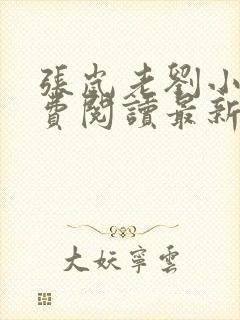 張嵐老劉小
費閱讀最新
大妖寧雲